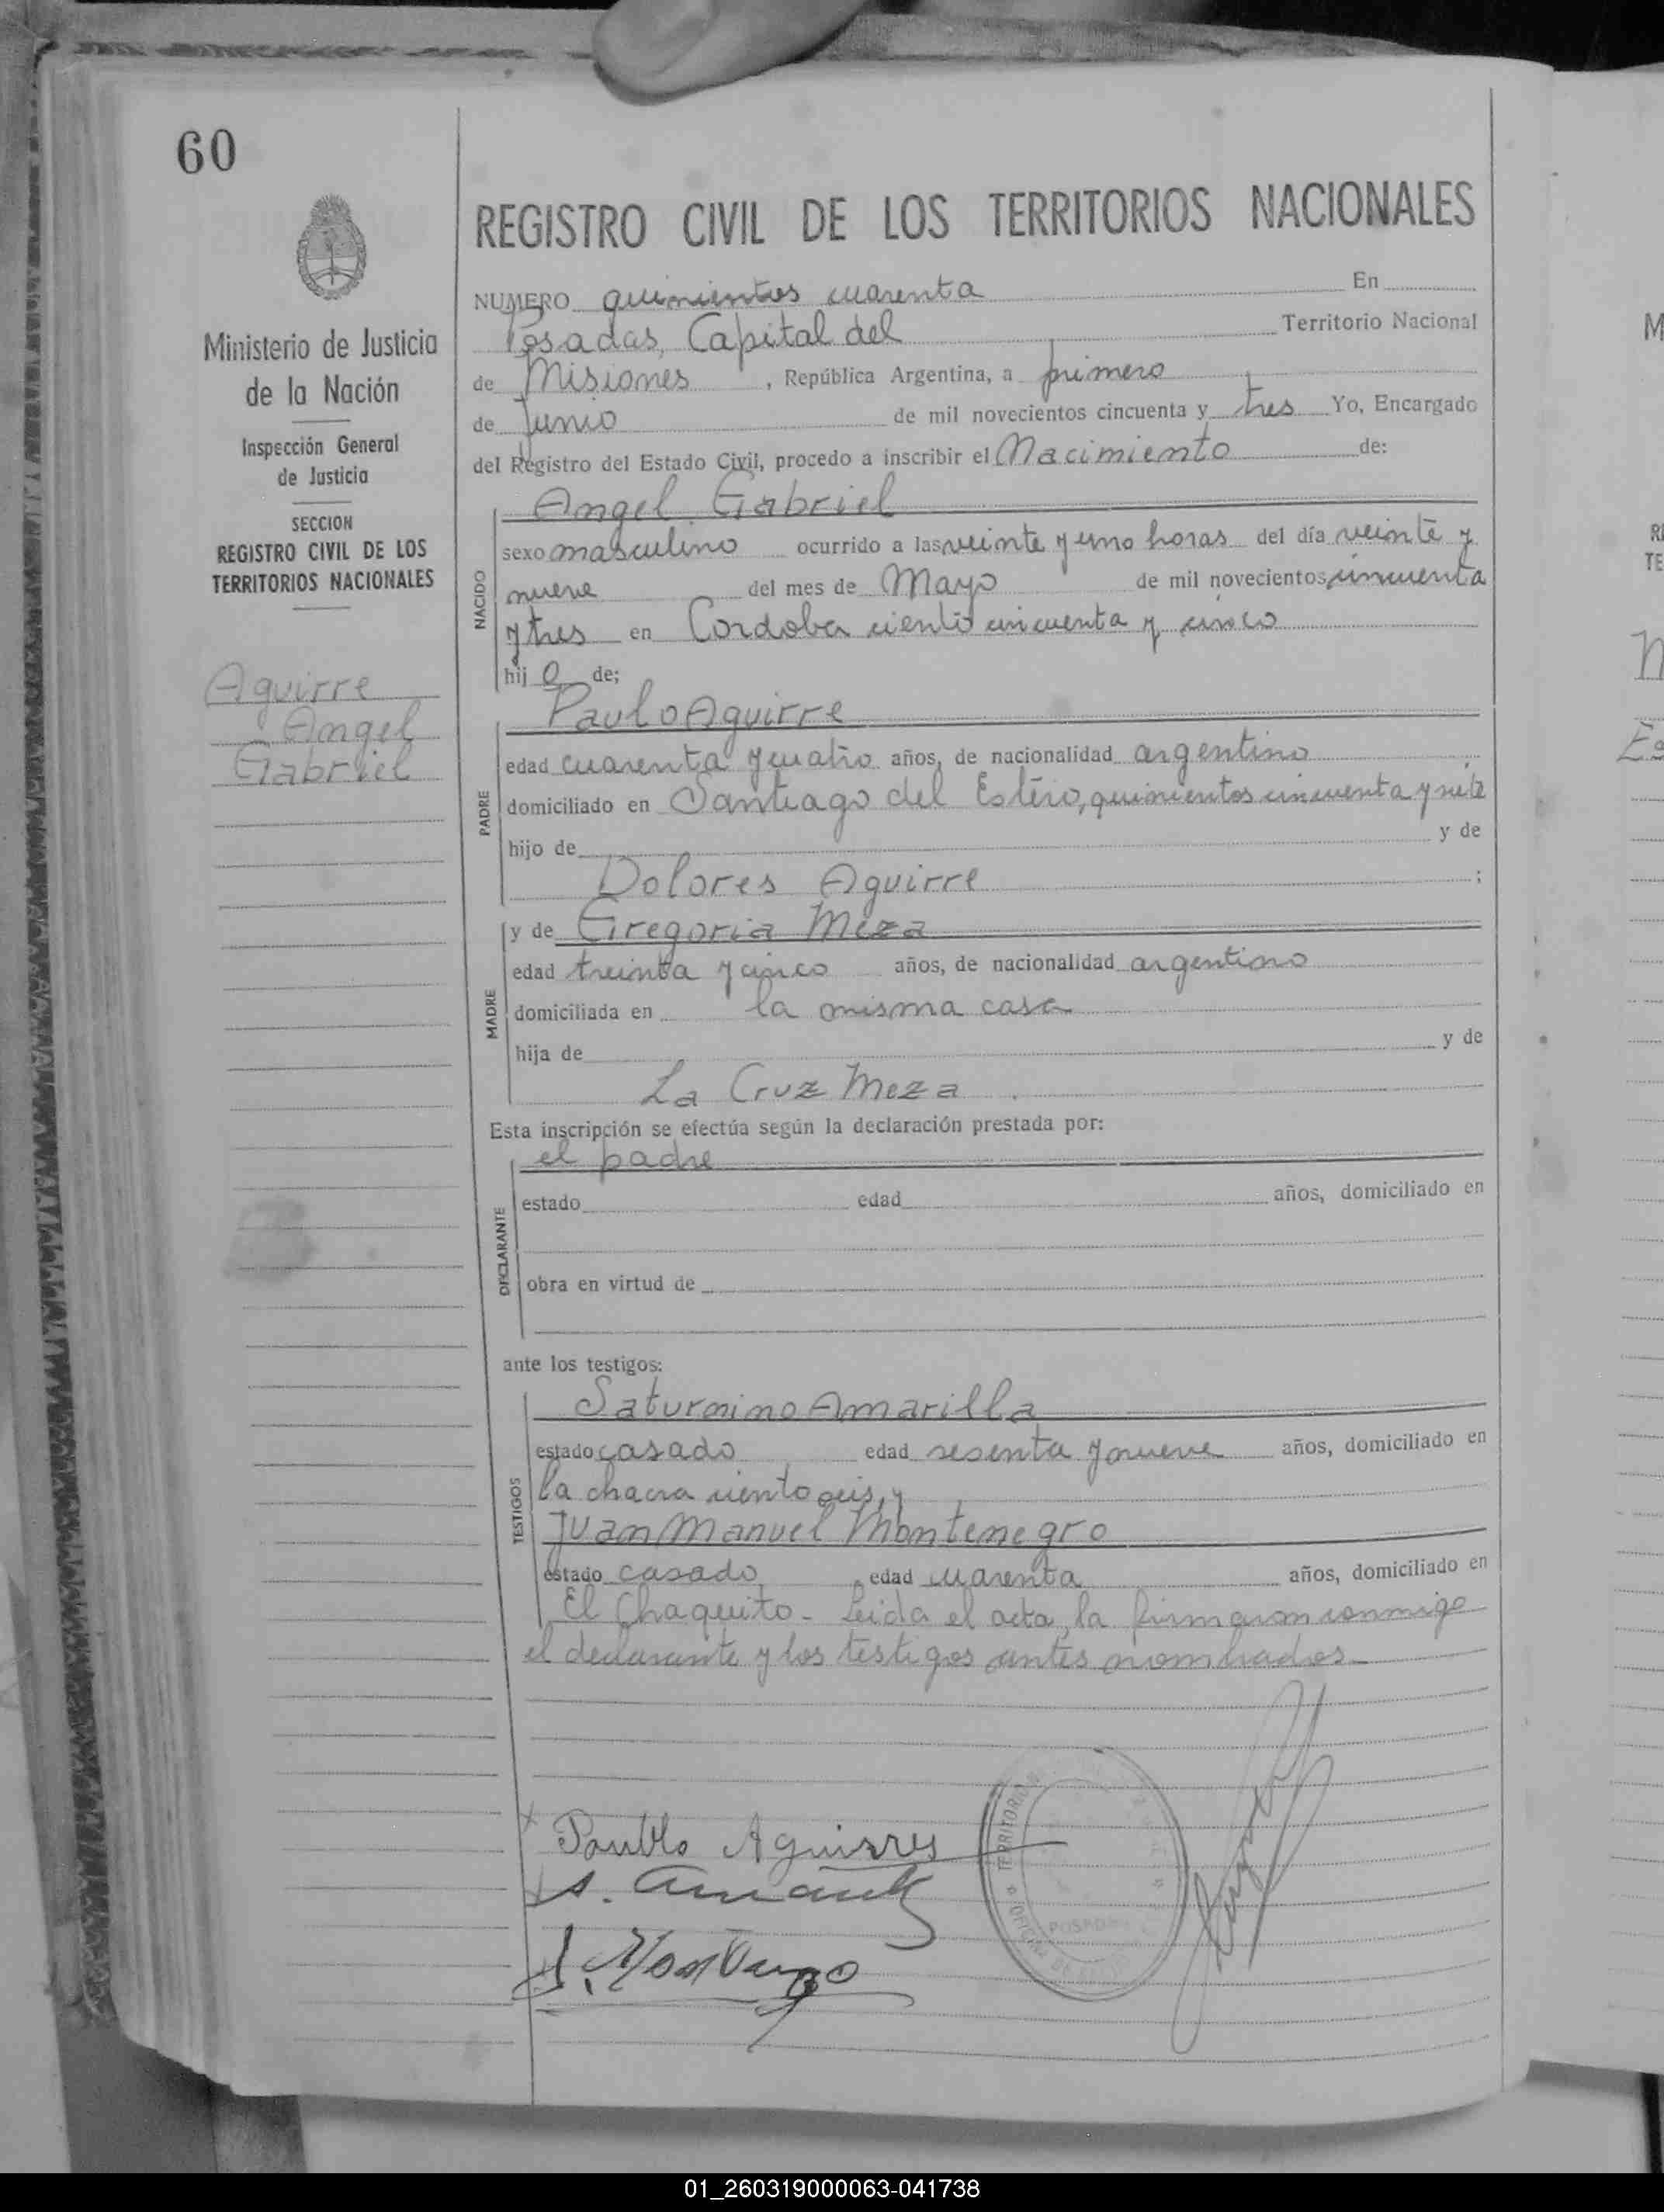 60
REGISTRO CIVIL DE LOS TERRITORIOS NACIONALES
Ministerio de Justicia
de la Nación
Inspección General
de Justicia
SECCION
REGISTRO CIVIL DE LOS
TERRITORIOS NACIONALES
Aguirre
Angel
Gabriel
NUMERO quinientos cuarenta En
Posadas, Capital del Territorio Nacional
de Misiones, República Argentina, a primero
de Junio de mil novecientos cincuenta y tres Yo, Encargado
del Registro del Estado Civil, procedo a inscribir el Nacimiento de:
NACIDO
Angel Gabriel
sexo masculino ocurrido a las veinte y uno horas del día veinte y
nueve del mes de Mayo de mil novecientos cincuenta
y tres en Cordoba ciento cincuenta y cinco
hij o de;
PADRE
Paulo Aguirre
edad cuarenta y cuatro años, de nacionalidad argentino
domiciliado en Santiago del Estero, quinientos cincuenta y siete
hijo de y de
Dolores Aguirre ;
MADRE
y de Gregoria Meza
edad treinta y cinco años, de nacionalidad argentino
domiciliada en la misma casa
hija de y de
La Cruz Meza
Esta inscripción se efectúa según la declaración prestada por:
DECLARANTE
el padre
estado edad años, domiciliado en
obra en virtud de
ante los testigos:
TESTIGOS
Saturnino Amarilla
estado casado edad sesenta y nueve años, domiciliado en
la chacra ciento seis, y
Juan Manuel Montenegro
estado casado, edad cuarenta años, domiciliado en
El Chaquito - Leida el acta, la firmaron conmigo
el declarante y los testigos antes nombrados
Pablo Aguirres
TERRITORIOS
POSADAS
01_260319000063-041738